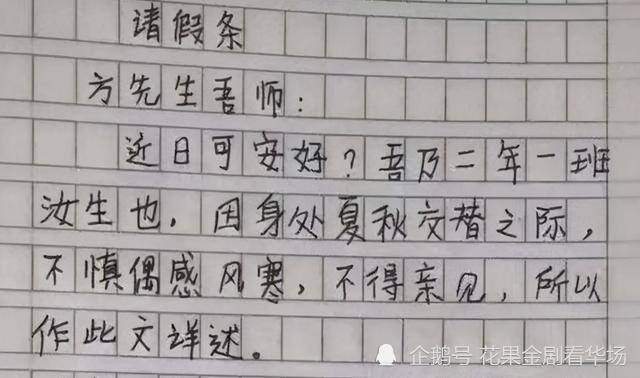 请假条
方先生吾师：
近日可安好？吾乃二年一班
汝生也，因身处夏秋交替之际，
不慎偶感风寒，不得亲见，所以
作此文详述。
企鹅号 花果金剧看华场